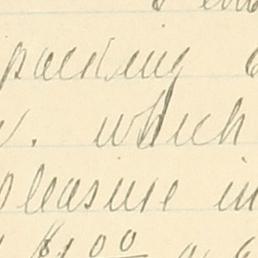 packing
which
pleasure in
$1.00 a